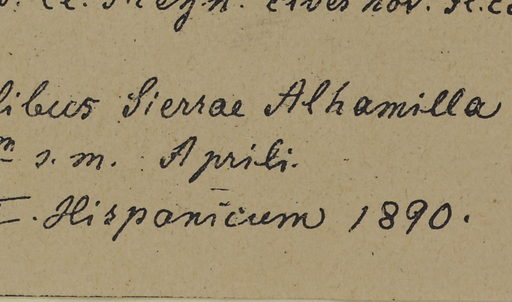 cives nov.
libus Sierrae Alhamilla
m s. m. Aprili.
I. Hispanicum 1890.